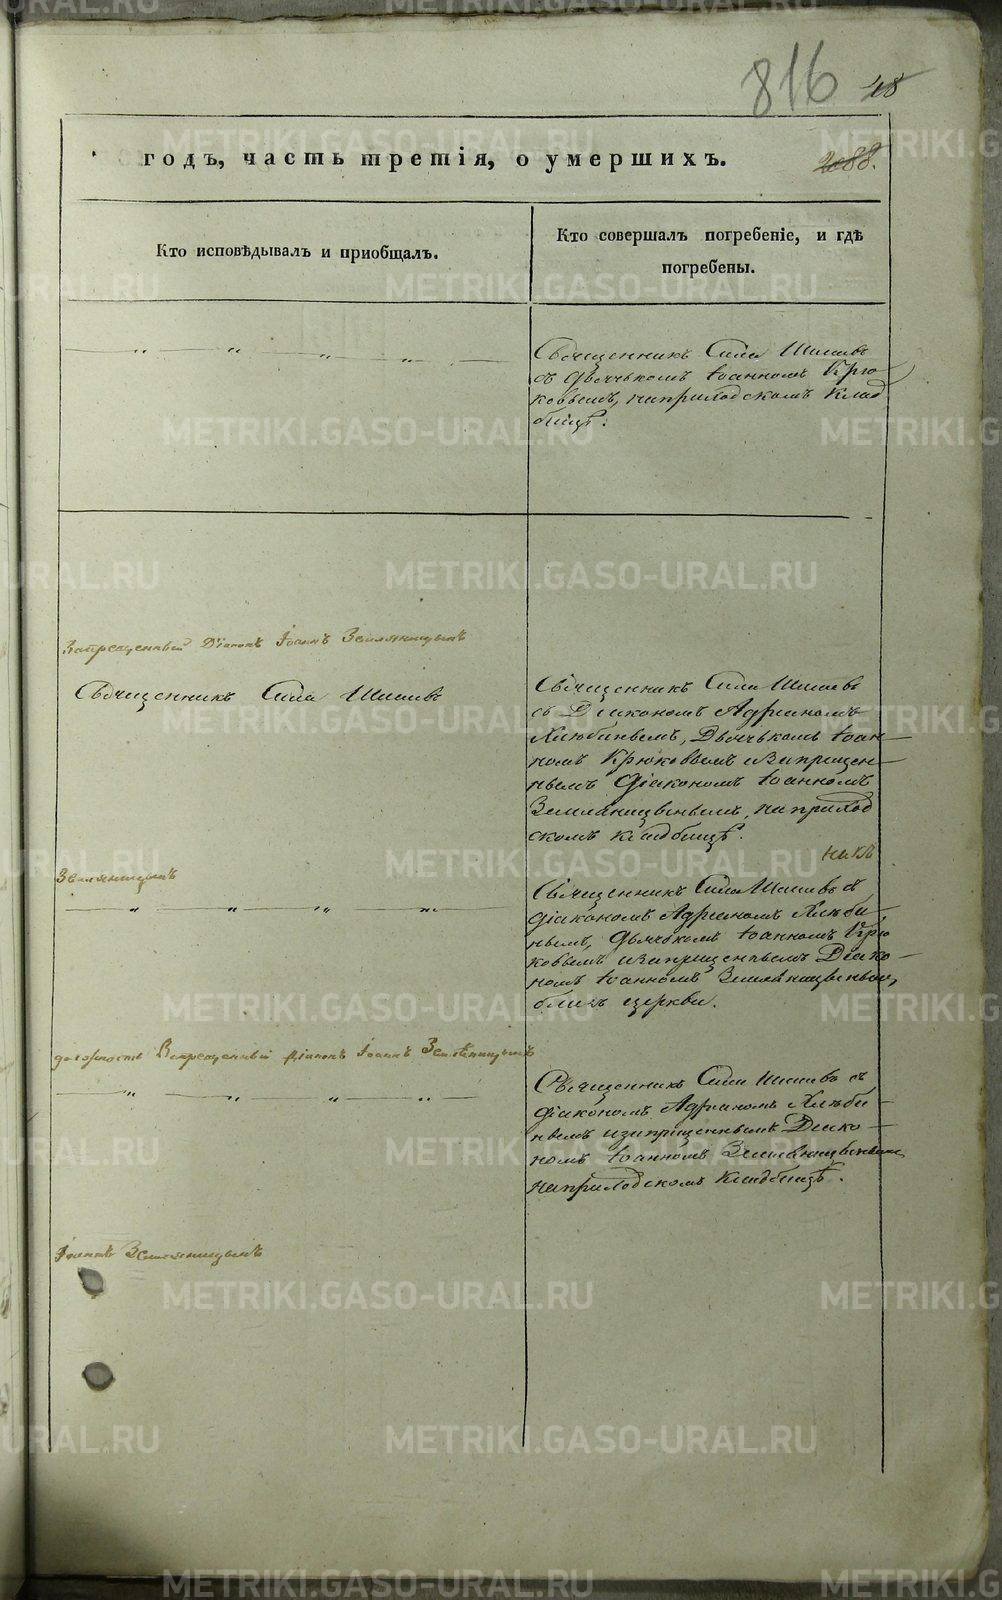 816 48
годъ, часть третія, о умершихъ.
2088.
Кто исповѣдывалъ и приобщалъ.
Кто совершалъ погребеніе, и гдѣ
погребены.
Священникъ Сила Шишевъ
съ дьячькомъ Іоанномъ Крю
ковымъ, на приходскомъ клад
бищѣ.
Запрещенный Діаконъ Іоаннъ Земляницынъ
Священникъ Сила Шишевъ
Священникъ Сила Шишевъ
съ Діакономъ Адрианомъ
Хлюбинымъ, Дьячькомъ Іоан
номъ Крюковымъ и запрещен
нымъ діакономъ Іоанномъ
Земляницынымъ, на приход
скомъ кладбищѣ.
Земляницынъ
Священникъ Сила Шишевъ съ
діакономъ Адрианомъ Хлѣби
нымъ, дьячькомъ Іоанномъ Крю
ковымъ и запрещеннымъ Діако
номъ Іоанномъ Земляницынымъ,
близъ церкви.
должность Запрещенный діаконъ Іоаннъ Земляницынъ
Священникъ Сила Шишевъ съ
діакономъ Адрианомъ Хлѣби
нымъ и запрещеннымъ Діако
номъ Іоанномъ Земляницынымъ
на приходскомъ кладбищѣ.
Іоаннъ Земляницынъ
METRIKI.GASO-URAL.RU